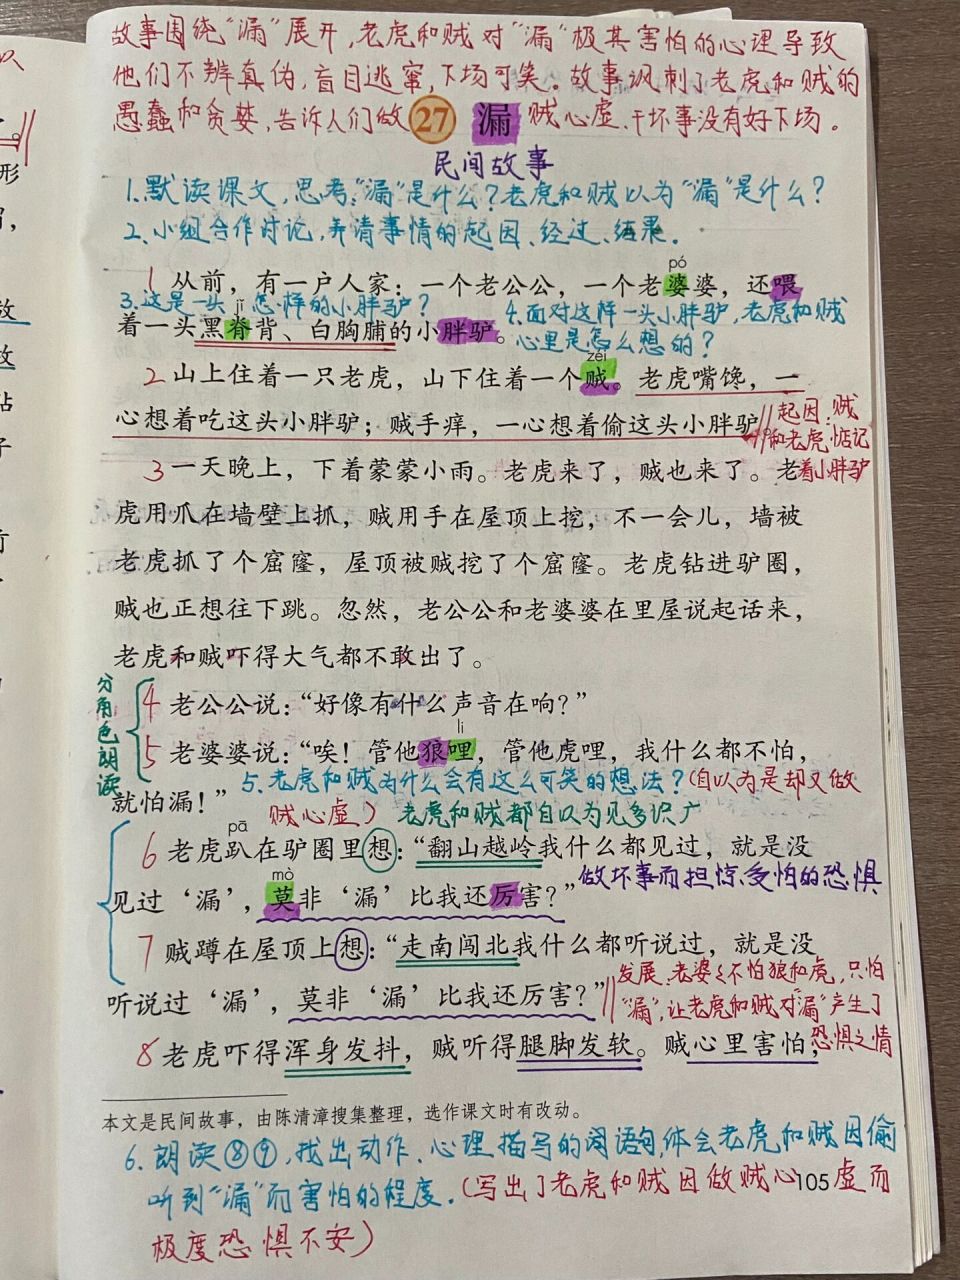 故事围绕“漏”展开,老虎和贼对“漏”极其害怕的心理导致
他们不辨真伪,盲目逃窜,下场可笑。故事讽刺了老虎和贼的
愚蠢和贪婪,告诉人们做贼心虚、干坏事没有好下场。
27 漏
民间故事
1.默读课文,思考:“漏”是什么?老虎和贼以为“漏”是什么?
2.小组合作讨论,弄清事情的起因、经过、结果。
pó
1 从前,有一户人家:一个老公公,一个老婆婆,还喂
3.这是一头怎样的小胖驴?
4.面对这样一头小胖驴,老虎和贼
心里是怎么想的?
jǐ
着一头黑脊背、白胸脯的小胖驴。
zéi
2 山上住着一只老虎,山下住着一个贼。老虎嘴馋,一
心想着吃这头小胖驴;贼手痒,一心想着偷这头小胖驴。
起因:贼
和老虎惦记
着小胖驴
3 一天晚上,下着蒙蒙小雨。老虎来了,贼也来了。老
虎用爪在墙壁上抓,贼用手在屋顶上挖,不一会儿,墙被
老虎抓了个窟窿,屋顶被贼挖了个窟窿。老虎钻进驴圈,
贼也正想往下跳。忽然,老公公和老婆婆在里屋说起话来,
老虎和贼吓得大气都不敢出了。
分角色朗读
4 老公公说:“好像有什么声音在响?”
li
5 老婆婆说:“唉!管他狼哩,管他虎哩,我什么都不怕,
就怕漏!”
5.老虎和贼为什么会有这么可笑的想法?(自以为是却又做
贼心虚) 老虎和贼都自以为见多识广
pā
6 老虎趴在驴圈里想:“翻山越岭我什么都见过,就是没
mò
见过‘漏’,莫非‘漏’比我还厉害?”
做坏事而担惊受怕的恐惧
7 贼蹲在屋顶上想:“走南闯北我什么都听说过,就是没
听说过‘漏’,莫非‘漏’比我还厉害?”
发展:老婆婆不怕狼和虎,只怕
“漏”,让老虎和贼对“漏”产生了
恐惧之情
8 老虎吓得浑身发抖,贼听得腿脚发软。贼心里害怕,
本文是民间故事,由陈清漳搜集整理,选作课文时有改动。
6.朗读⑧⑨,找出动作、心理描写的词语句,体会老虎和贼因偷
听到“漏”而害怕的程度.(写出了老虎和贼因做贼心虚而
极度恐惧不安)
105